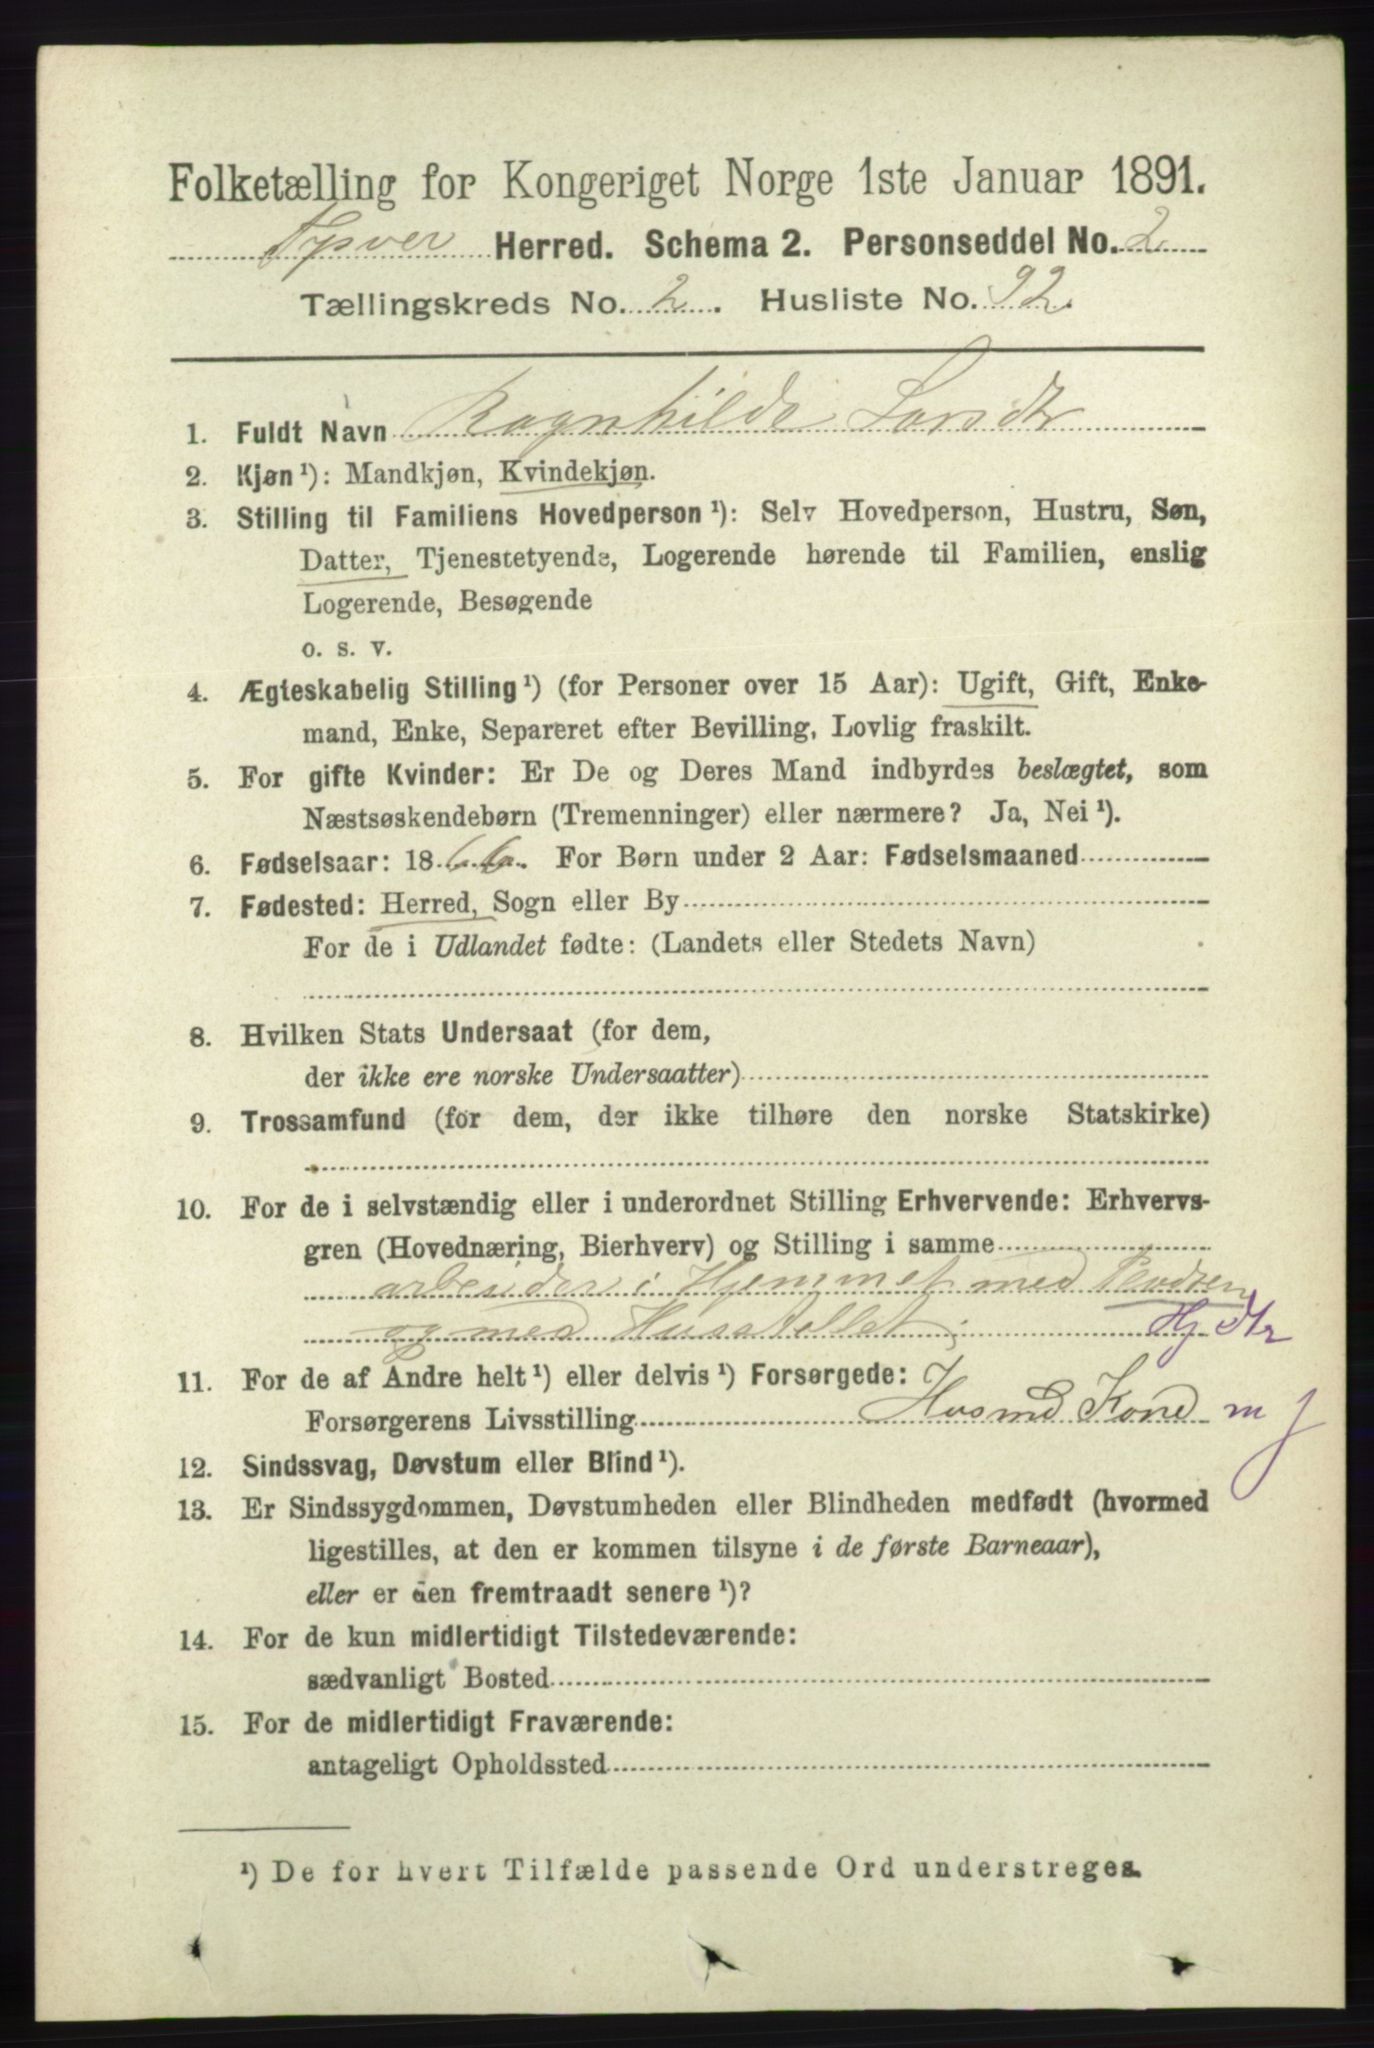 Folketælling for Kongeriget Norge 1ste Januar 1891.
Tysvær Herred. Schema 2. Personseddel No. 2
Tællingskreds No. 2. Husliste No. 92.
1. Fuldt Navn Ragnhilde Larsdtr
2. Kjøn ¹): Mandkjøn, Kvindekjøn.
3. Stilling til Familiens Hovedperson ¹): Selv Hovedperson, Hustru, Søn,
Datter, Tjenestetyende, Logerende hørende til Familien, enslig
Logerende, Besøgende
o. s. v.
4. Ægteskabelig Stilling ¹) (for Personer over 15 Aar): Ugift, Gift, Enke-
mand, Enke, Separeret efter Bevilling, Lovlig fraskilt.
5. For gifte Kvinder: Er De og Deres Mand indbyrdes beslægtet, som
Næstsøskendebørn (Tremenninger) eller nærmere? Ja, Nei ¹).
6. Fødselsaar: 1866. For Børn under 2 Aar: Fødselsmaaned
7. Fødested: Herred, Sogn eller By
For de i Udlandet fødte: (Landets eller Stedets Navn)
8. Hvilken Stats Undersaat (for dem,
der ikke ere norske Undersaatter)
9. Trossamfund (for dem, der ikke tilhøre den norske Statskirke)
10. For de i selvstændig eller i underordnet Stilling Erhvervende: Erhvervs-
gren (Hovednæring, Bierhverv) og Stilling i samme
arbeider i Hjemmet med
og med Husstellet Hj dtr
11. For de af Andre helt ¹) eller delvis ¹) Forsørgede:
Forsørgerens Livsstilling Husmd Kone m J
12. Sindssvag, Døvstum eller Blind ¹).
13. Er Sindssygdommen, Døvstumheden eller Blindheden medfødt (hvormed
ligestilles, at den er kommen tilsyne i de første Barneaar),
eller er den fremtraadt senere ¹)?
14. For de kun midlertidigt Tilstedeværende:
sædvanligt Bosted
15. For de midlertidigt Fraværende:
antageligt Opholdssted
¹) De for hvert Tilfælde passende Ord understreges.